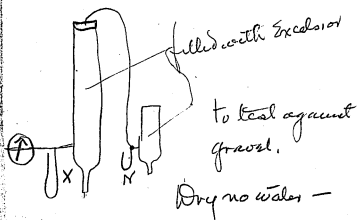 filled with Excelsior
to test against
gravel.
X
N
Dry no water —